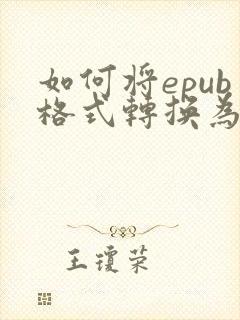 如何将epub
格式轉換為
王瓊荣